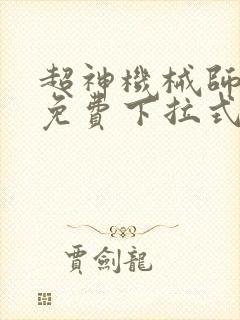 超神機械師
免費下拉式
賈劍龍